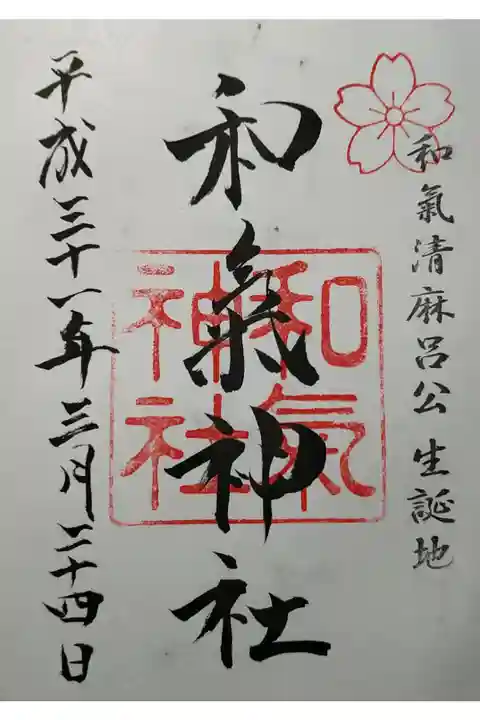 和氣清麻呂公生誕地
和氣神社
和氣
神社
平成三十一年三月二十四日